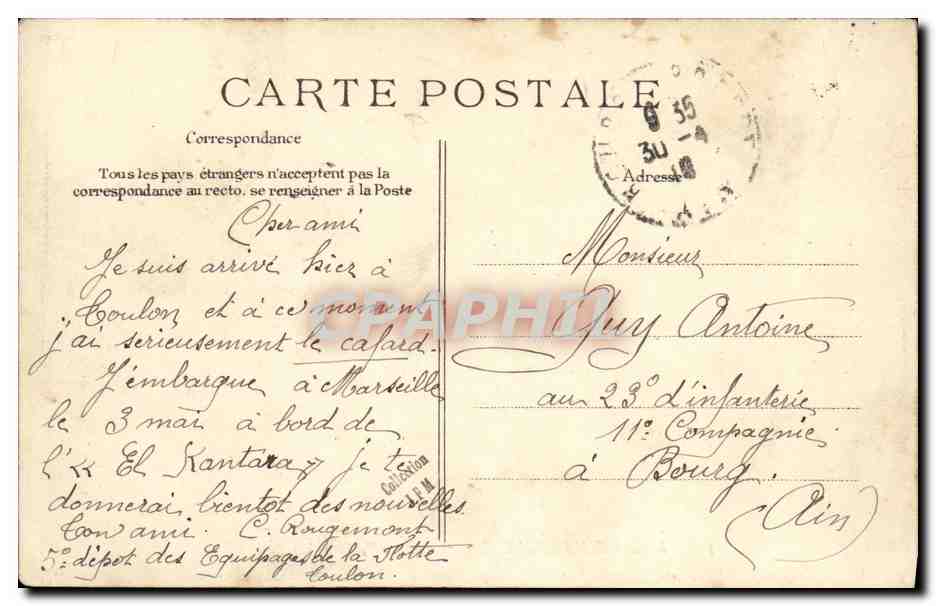 CARTE POSTALE
Correspondance
Tous les pays étrangers n'acceptent pas la
correspondance au recto. se renseigner à la Poste
Cher ami
Je suis arrivé hier à
Toulon et à ce moment
j'ai serieusement le cafard.
J'embarque à Marseille
le 3 mai à bord de
l'« El Kantara » je te
donnerai bientot des nouvelles.
Ton ami. C. Rougemont
5e dépot des Equipages de la Flotte
Toulon.
Collection
J.F.M
9 35
30 -4
Adresse
Monsieur
Guy Antoine
au 23e d'infanterie
11e Compagnie
à Bourg.
(Ain)
CPAPHIL